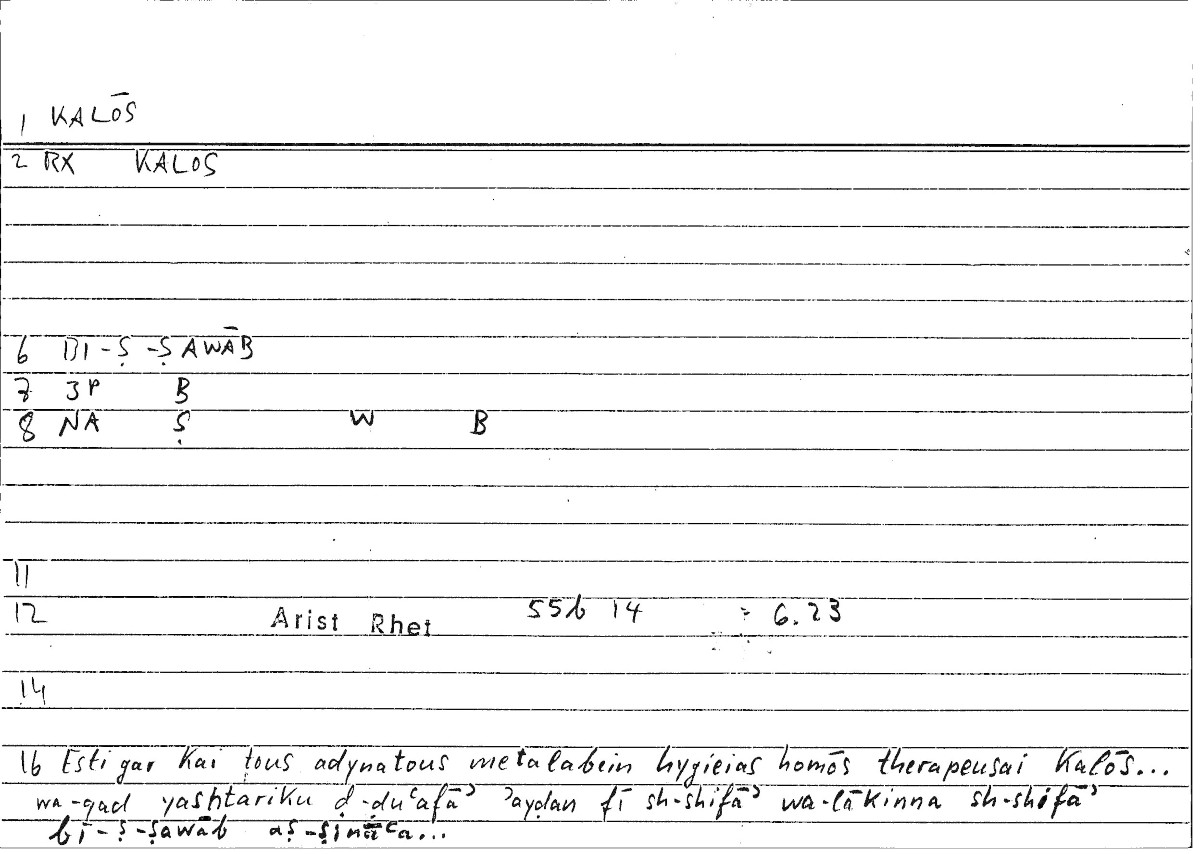 1 KALŌS
2 RX KALOS
6 BI-Ṣ-ṢAWĀB
7 3P B
8 NA Ṣ W B
11
12 Arist Rhet 55b 14 = 6.23
14
16 Esti gar kai tous adynatous metalabein hygieias homōs therapeusai kalōs...
wa-qad yashtariku ḍ-ḍuʿafāʾ ʾayḍan fī sh-shifāʾ wa-lākinna sh-shifāʾ
bi-ṣ-ṣawāb aṣ-ṣināʿa...